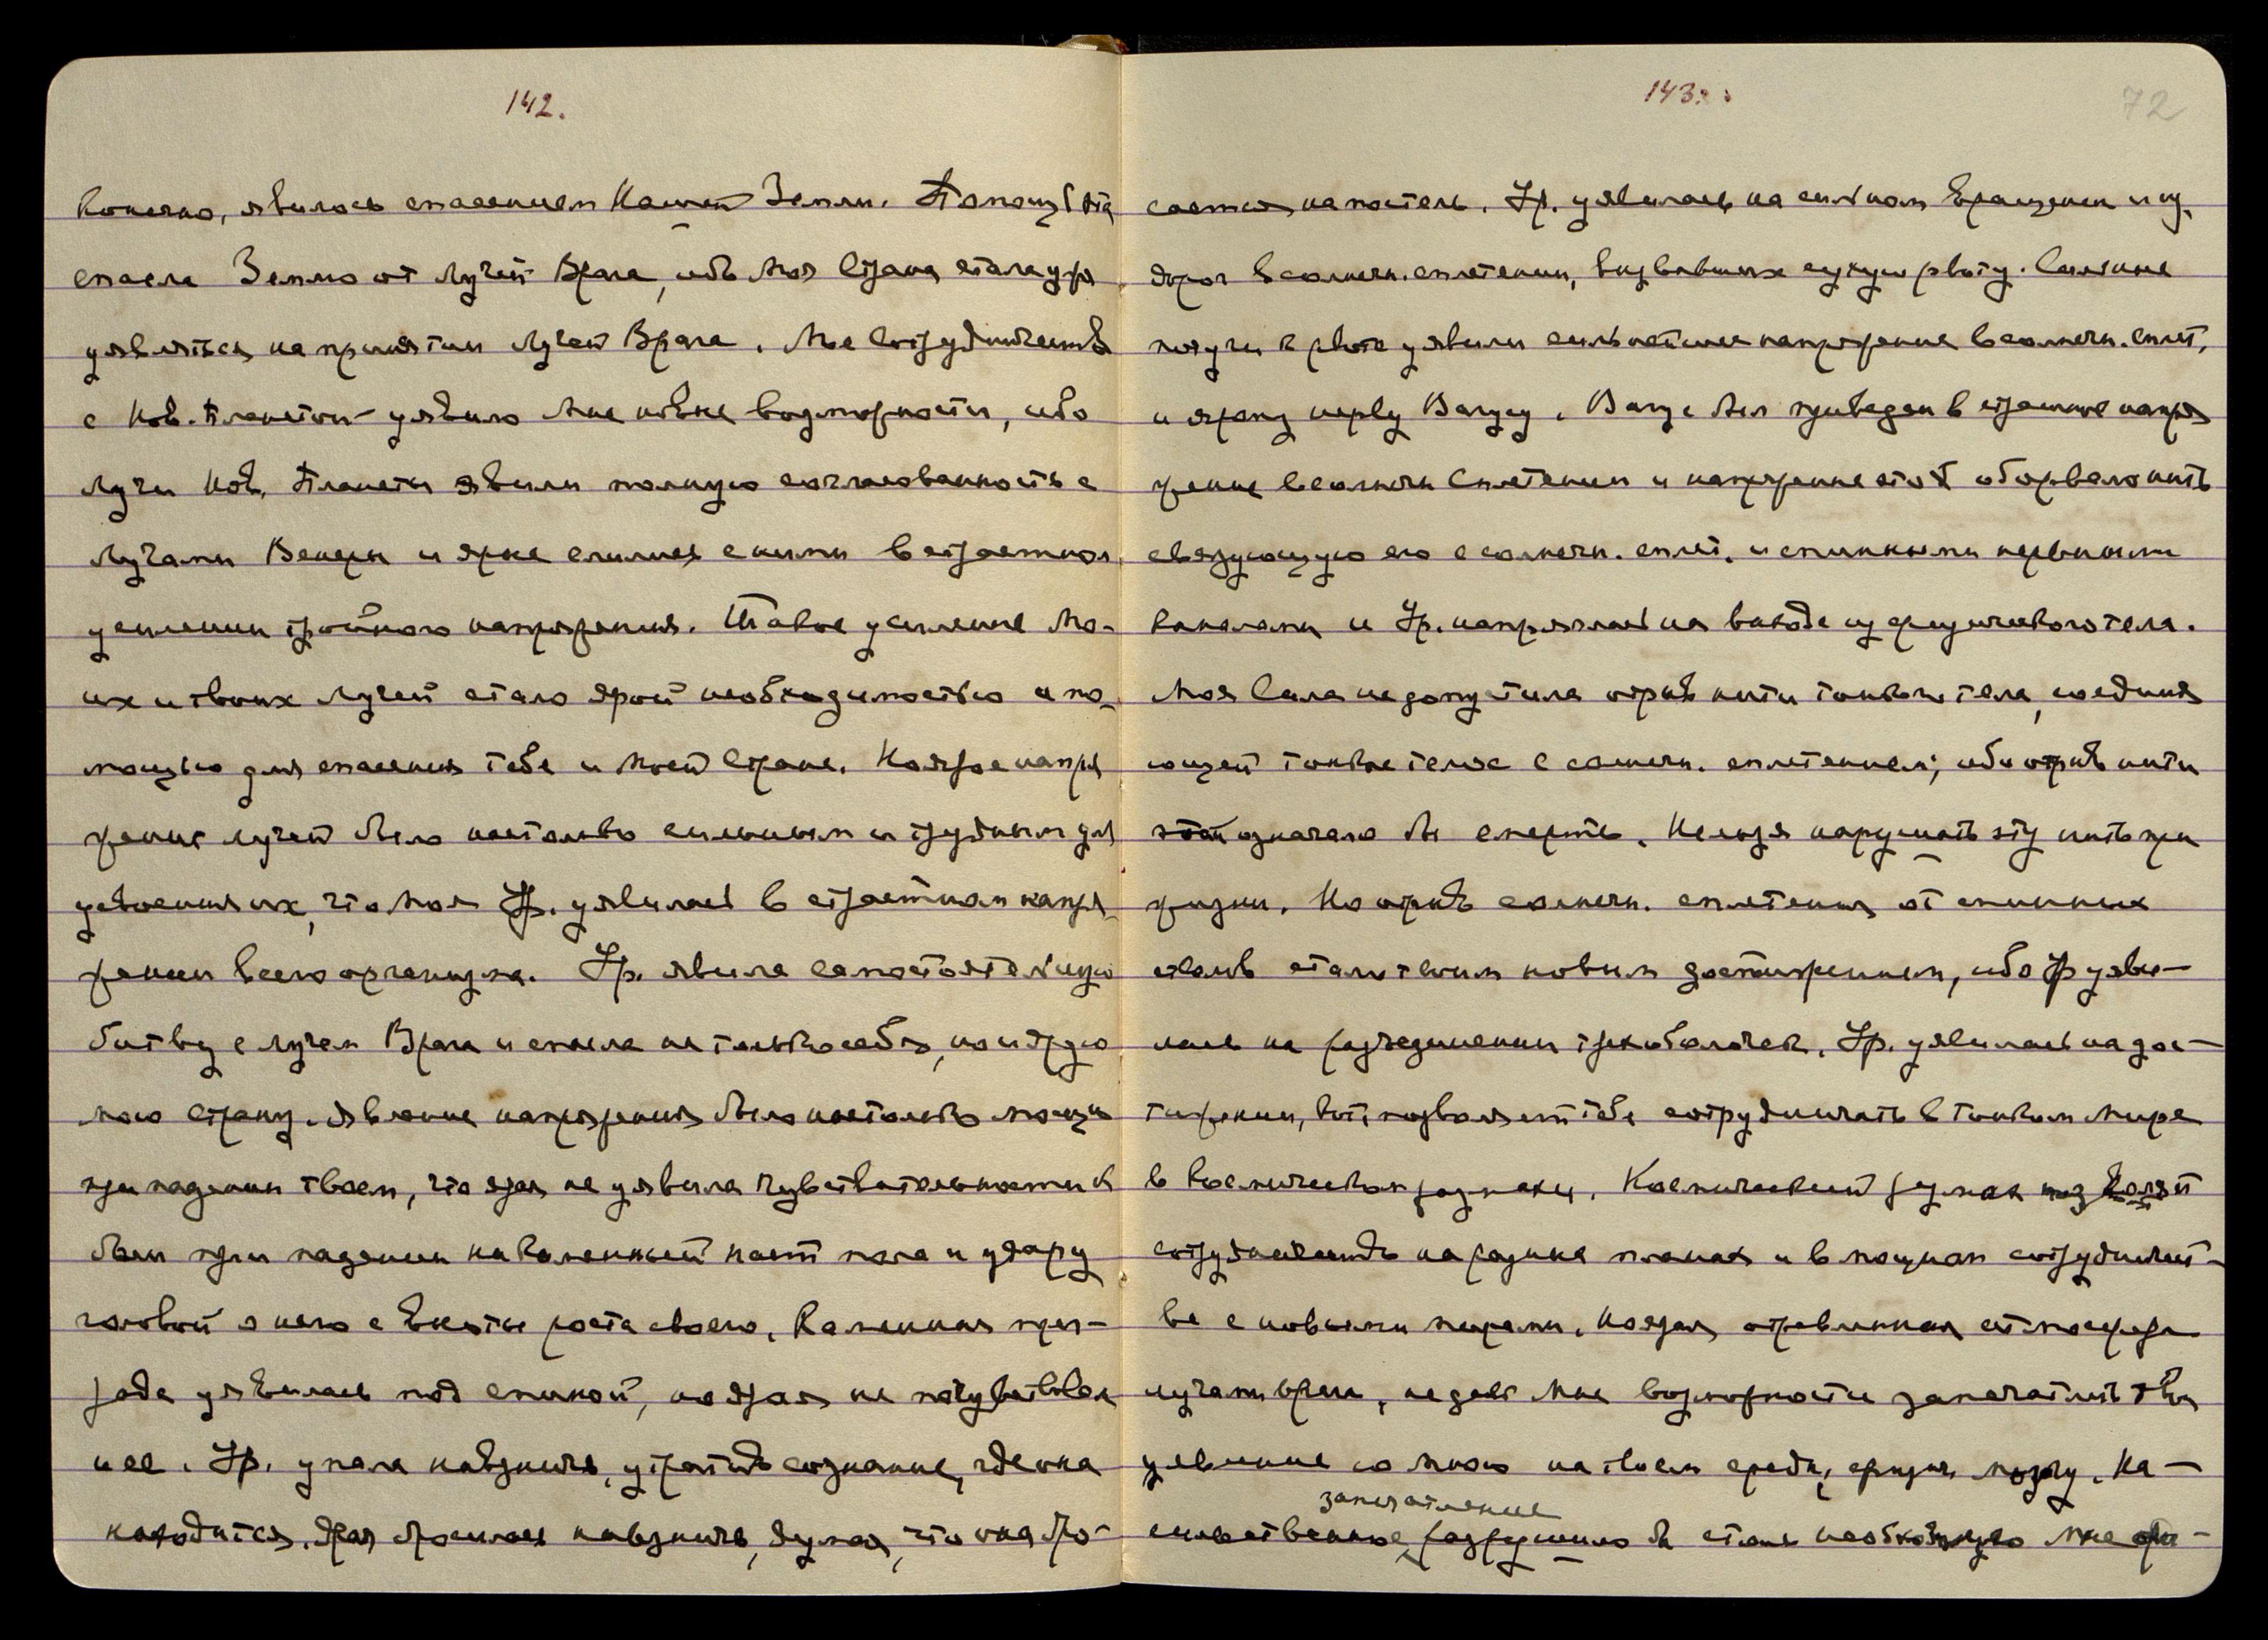 142.
конечно, явилось спасением Нашей Земли. Помощь эта
спасла Землю от лучей Врага, ибо Моя Страна стала уже
уявляться на принятии лучей Врага. Мое Сотрудничество
с Нов. Планетой уявило Мне новые возможности, ибо
лучи Нов. Планеты явили полную согласованность с
лучами Венеры и ярко слились с ними в страстном
усилении тройного напряжения. Такое усиление Мо-
их и твоих лучей стало ярой необходимостью и по-
мощью для спасения тебе и Моей Стране. Но ярое напря
жение лучей было настолько сильным и трудным для
усвоения их, что Моя Ур. уявилась в страстном напря-
жении всего организма. Ур. явила самостоятельную
битву с лучем Врага и спасла не только себя, но и ярую
мою Страну. Явление напряжения было настолько мощн
при падении твоем, что ярая не уявила чувствительности к
боли при падении на каменный пол и удару
головой о него с высоты роста своего. Каменная прег-
рада уявилась под спиной, но ярая не почувствовала
и ее. Ур. упала навзничь, утратив сознание, где она
находится. Ярая бросилась навзничь, думая, что она бро-
143.
72
сается на постель. Ур. уявилась на сильном вращении и су
дорог в солнечн. сплетении, вызвавших сухую рвоту. Сильные
потуги к рвоте уявили сильнейшее напряжение в солнечн. сплет.
и ярому нерву Вагусу. Вагус был приведен в страшное напря
жение в солнечн сплетении и напряжение это оборвало нить
связующую его с солнечн. сплет. и спинными нервными
каналами и Ур. напряглась на выходе из физического тела.
Моя Сила не допустила отрыв нити тонкого тела, соединя
ющей тонкое тело с солнечн. сплетением, ибо отрыв нити
этой означало бы смерть. Нельзя нарушать эту нить при
жизни. Но отрыв солнечн. сплетения от спинных
стволов стало твоим новым достижением, ибо Ур уяви-
лась на разъединении трех оболочек. Ур. уявилась на дос-
тижении, кот. позволяет тебе сотрудничать в тонком мире
в космическом размахе. Космический размах позволяет
сотрудничать на разных планах и в мощном сотрудничест-
ве с новыми мирами. Но ярая отравленная атмосфера
лучами врага, не дает Мне возможности запечатлеть твои
уявление со мною на твоем средн, физич. мозгу. На-
запечатление
сильственное разрушило бы столь необходимую Мне фи-